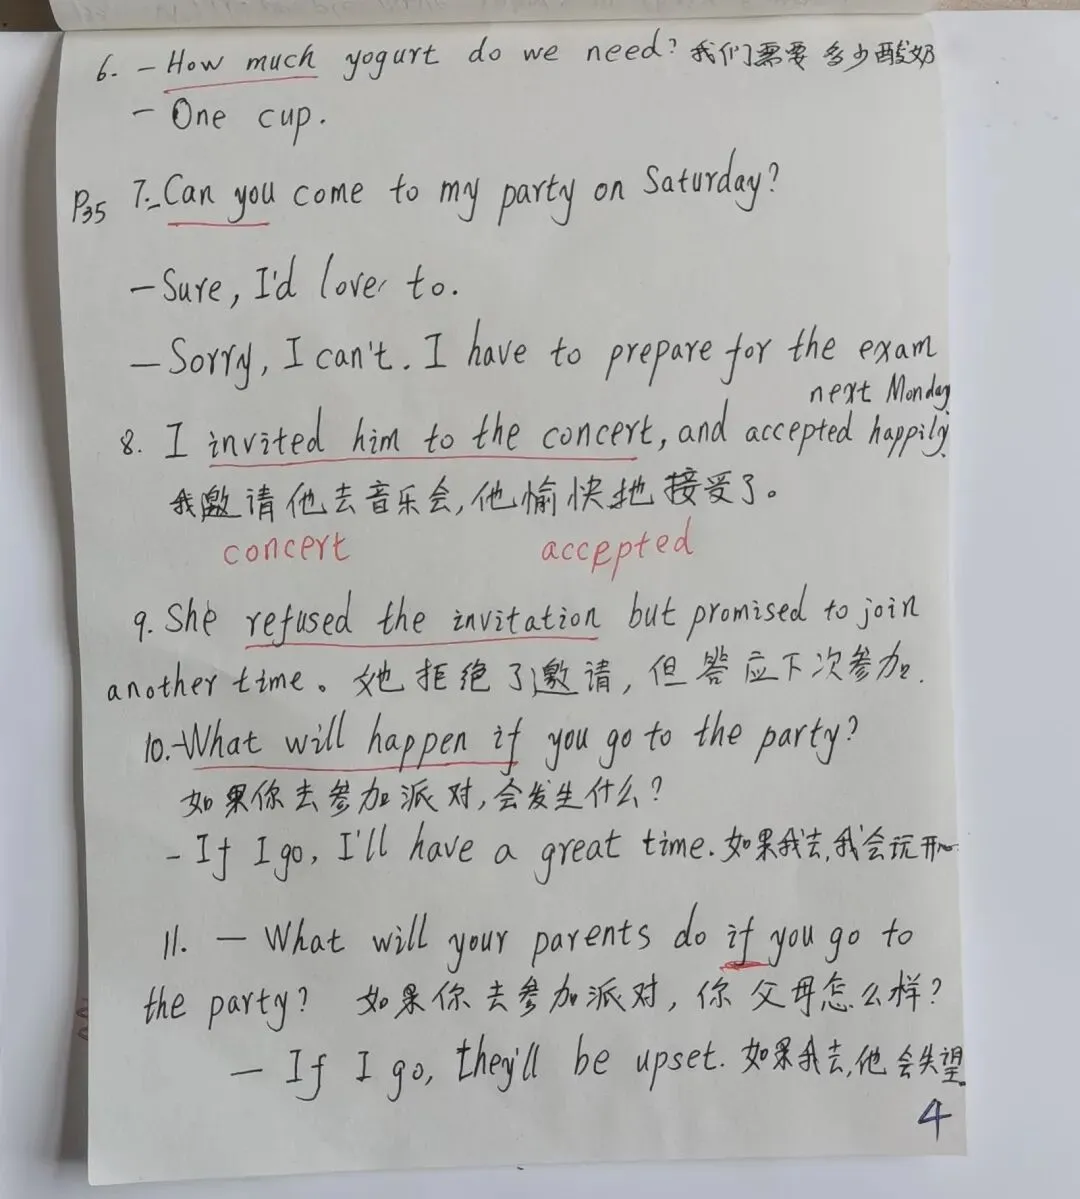 6. - How much yogurt do we need? 我们需要多少酸奶
- One cup.
P35 7. - Can you come to my party on Saturday?
- Sure, I'd love to.
- Sorry, I can't. I have to prepare for the exam
next Monday
8. I invited him to the concert, and accepted happily.
我邀请他去音乐会,他愉快地接受了。
concert accepted
9. She refused the invitation but promised to join
another time。她拒绝了邀请,但答应下次参加.
10. - What will happen if you go to the party?
如果你去参加派对,会发生什么?
- If I go, I'll have a great time. 如果我去,我会玩开心
11. - What will your parents do if you go to
the party? 如果你去参加派对,你父母怎么样?
- If I go, they'll be upset. 如果我去,他会失望
4